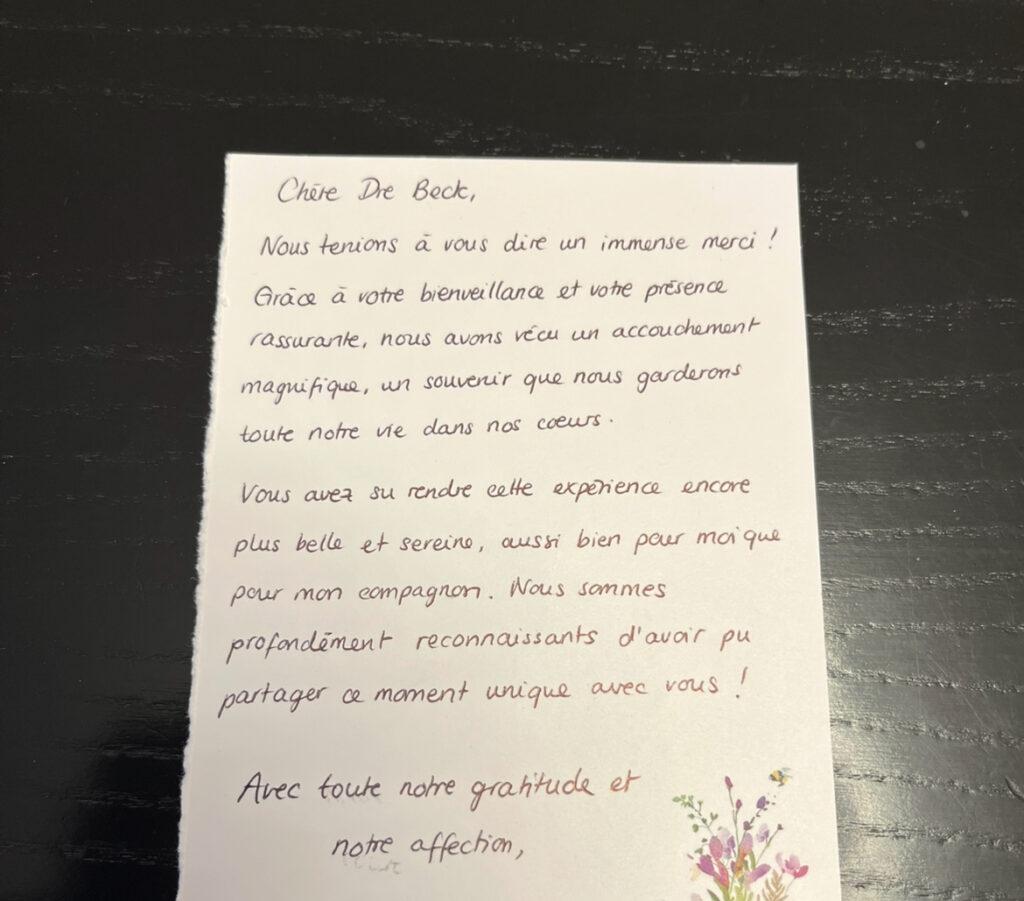 Chère Dre Beck,
Nous tenions à vous dire un immense merci !
Grâce à votre bienveillance et votre présence
rassurante, nous avons vécu un accouchement
magnifique, un souvenir que nous garderons
toute notre vie dans nos cœurs.
Vous avez su rendre cette expérience encore
plus belle et sereine, aussi bien pour moi que
pour mon compagnon. Nous sommes
profondément reconnaissants d'avoir pu
partager ce moment unique avec vous !
Avec toute notre gratitude et
notre affection,